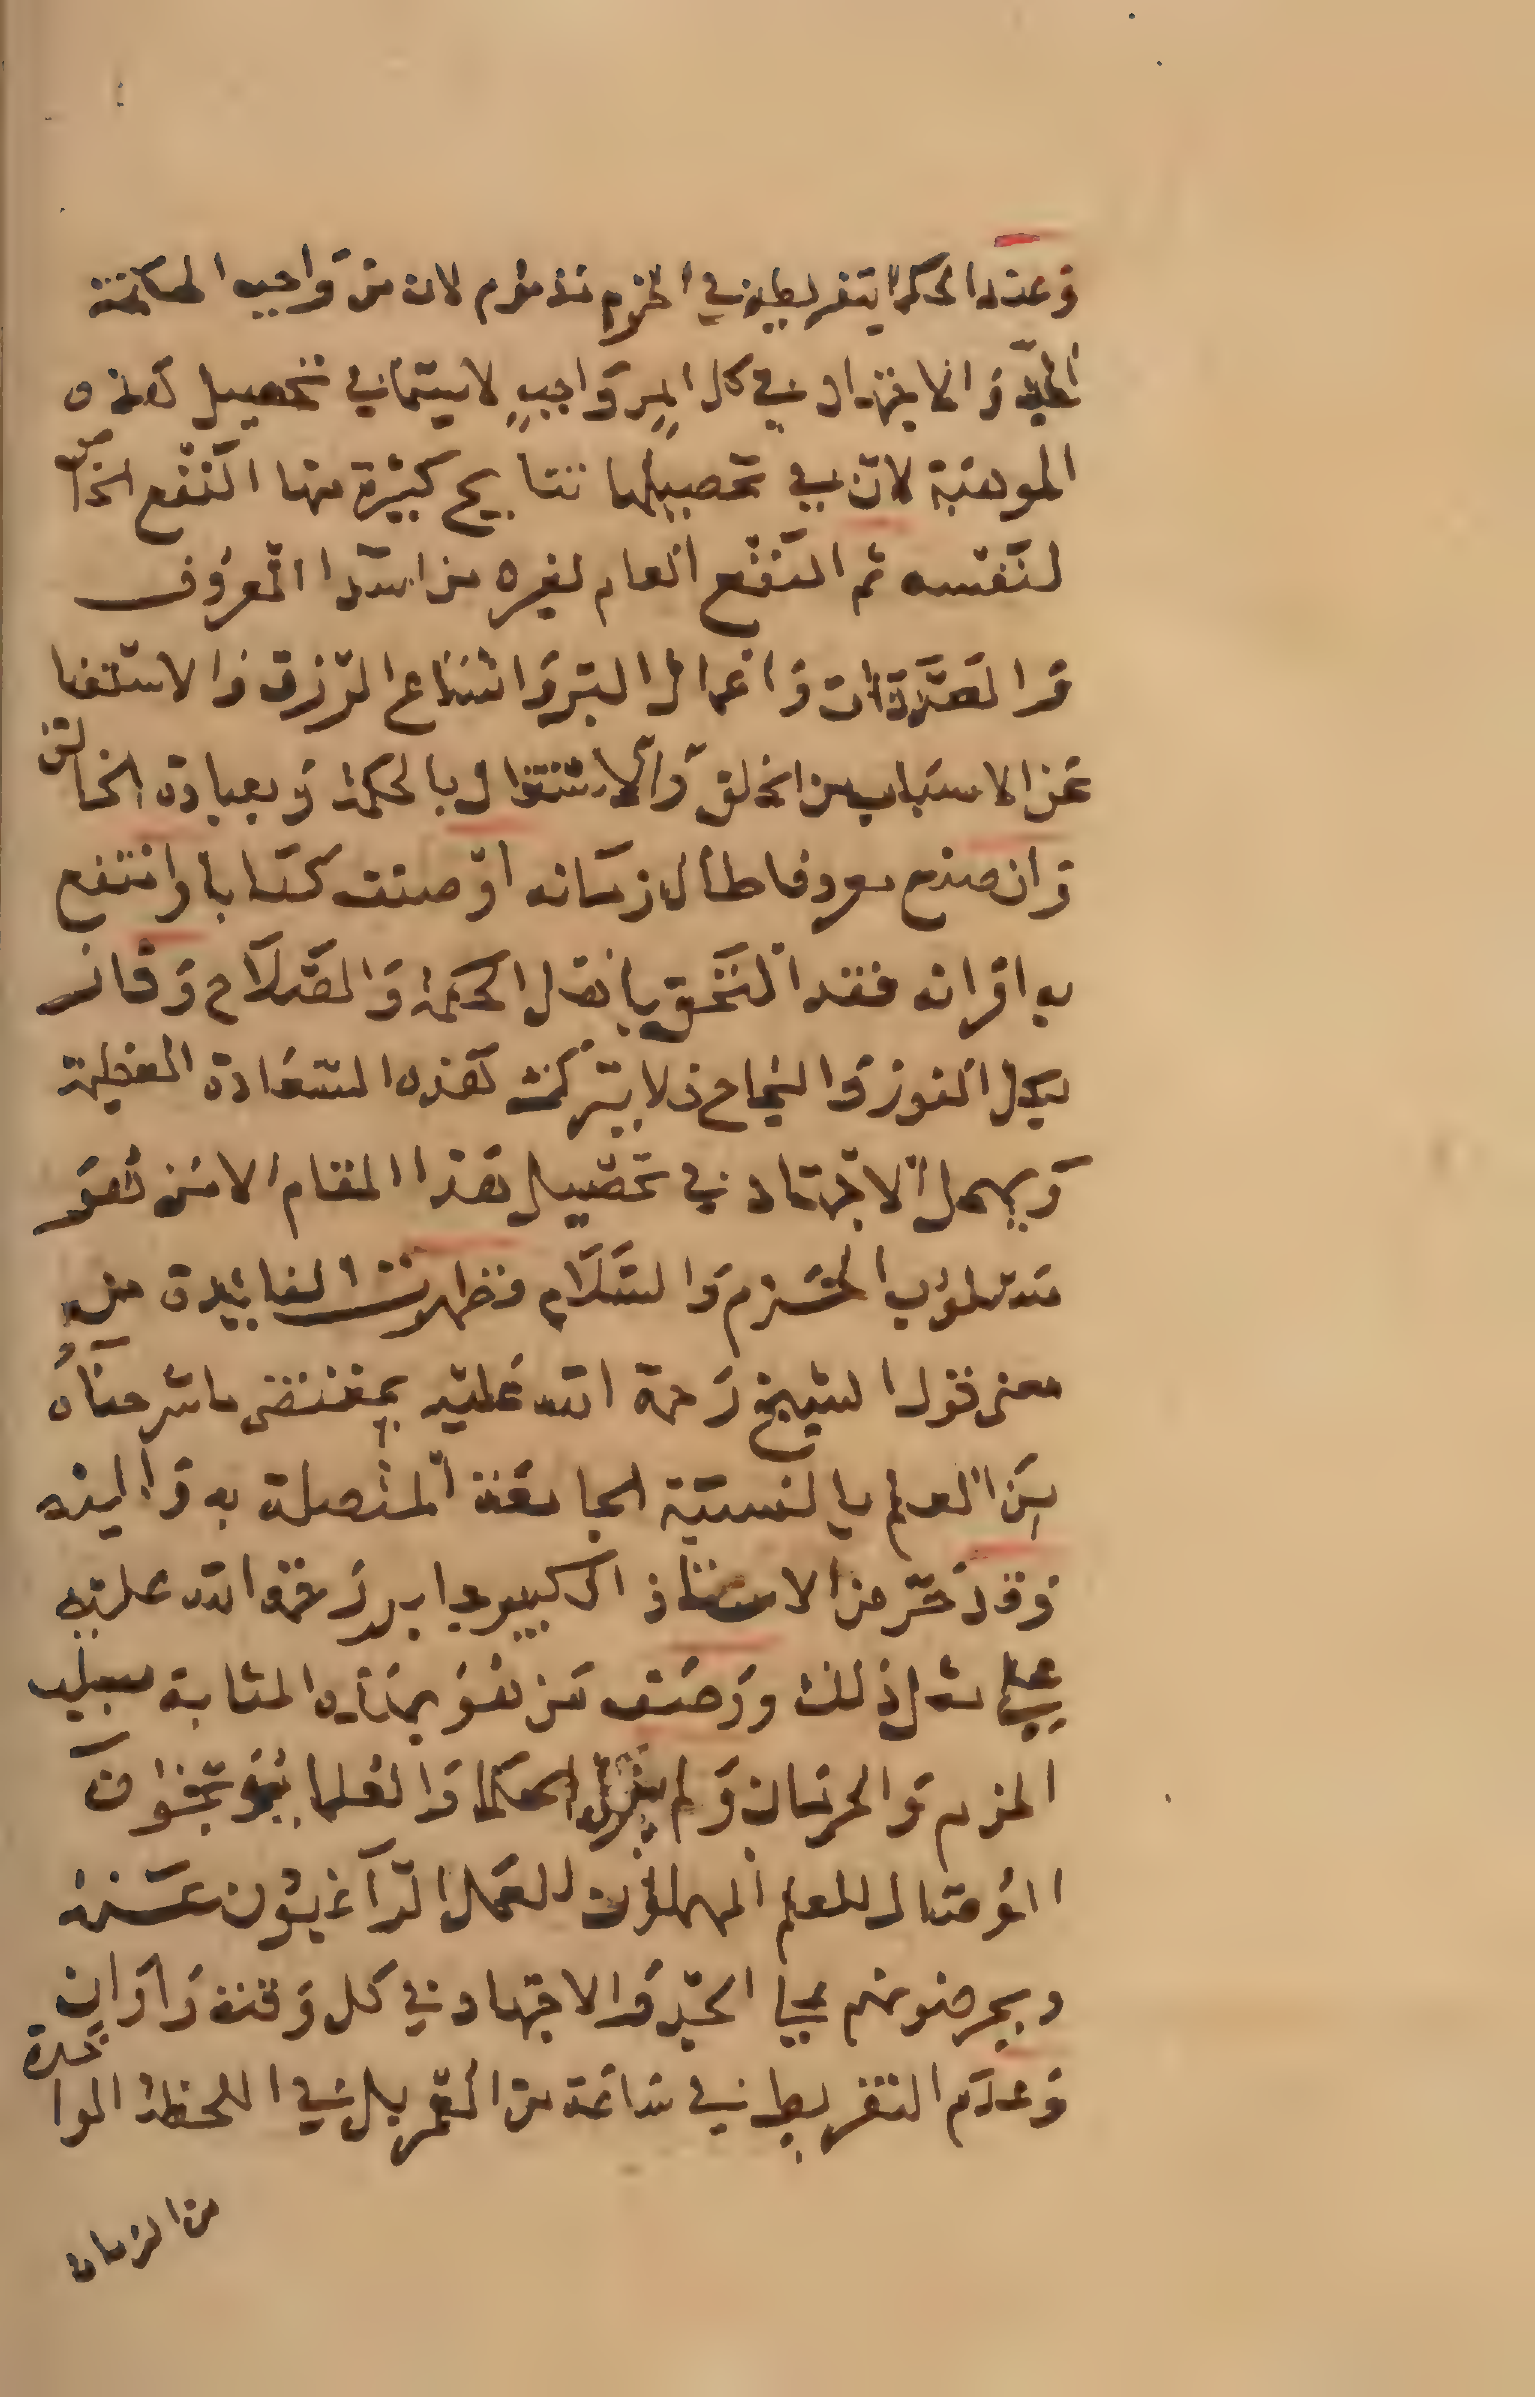 وعند الحكما يتفريطه في الحزم مذموم لان من واجب الحكمة
الجد والاجتهاد في كل امر واجب لاسيما في تحصيل هذه
الموهبة لان في تحصيلها نتايج كثيرة منها النفع الخاص
لنفسه ثم النفع العام لغيره من اسدا المعروف
والصدقات وافعال البر واتساع الرزق والاستغنا
عن الاسباب من الخلق والاشتغال بالحكمة وبعبادة الخالق
وان صنع معروفا طال زمانه او صنف كتابا وانتفع
به اقرانه فقد التحق بافضل الحكمة والصلاح وفاز
بكل الفوز والنجاح فلا يترك هذه السعادة العظيمة
ويهمل الاجتهاد في تحصيل هذا المقام الا من هو
مسلوب الحزم والسلام فظهرت الفايدة من
معنى قول الشيخ رحمة الله عليه بمقتضى ما شرحناه
من العلم بالنسبة الجامعة المتصلة به واليه
وقد حرّ من الاستاذ الكبير جابر رحمة الله عليه
على مثل ذلك ووصف من هو بهذه المثابة بسلب
الحزم والحرمان ولم يزل الحكما والعلما يوبخون
الوصال للعلم المهملون للعمل الراغبون عنه
ويحرضونهم على الجد والاجتهاد في كل وقت واوان
وعدم التفريط في ساعة من العمر بل في اللحظة الواحدة
من الزمان